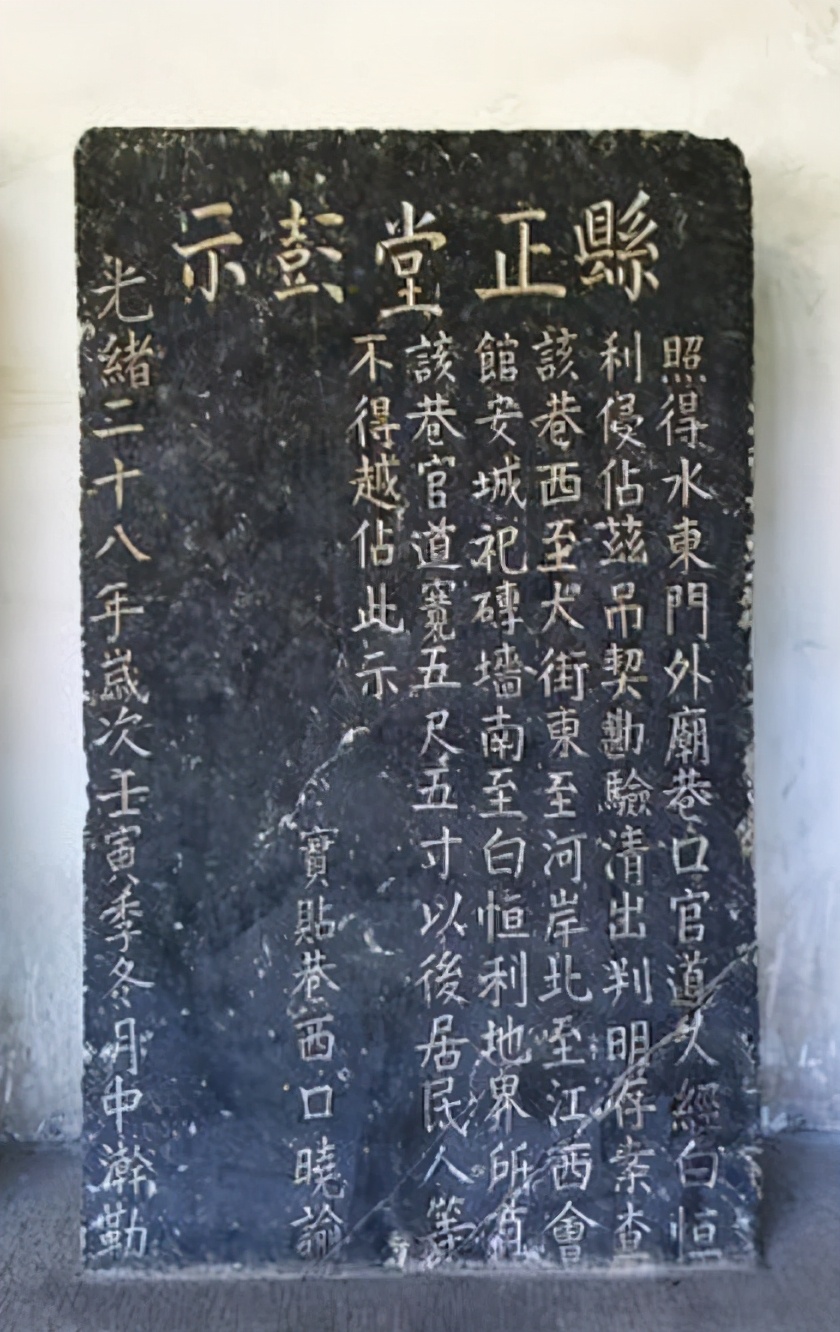 縣正堂彭示
照得水東門外廟巷口官道久經白恒
利侵佔茲吊契勘驗清出判明存案查
該巷西至大街東至河岸北至江西會
館安城祀磚墻南至白恒利地界所有
該巷官道寬五尺五寸以後居民人等
不得越佔此示
實貼巷西口曉諭
光緒二十八年歲次壬寅季冬月中澣勒